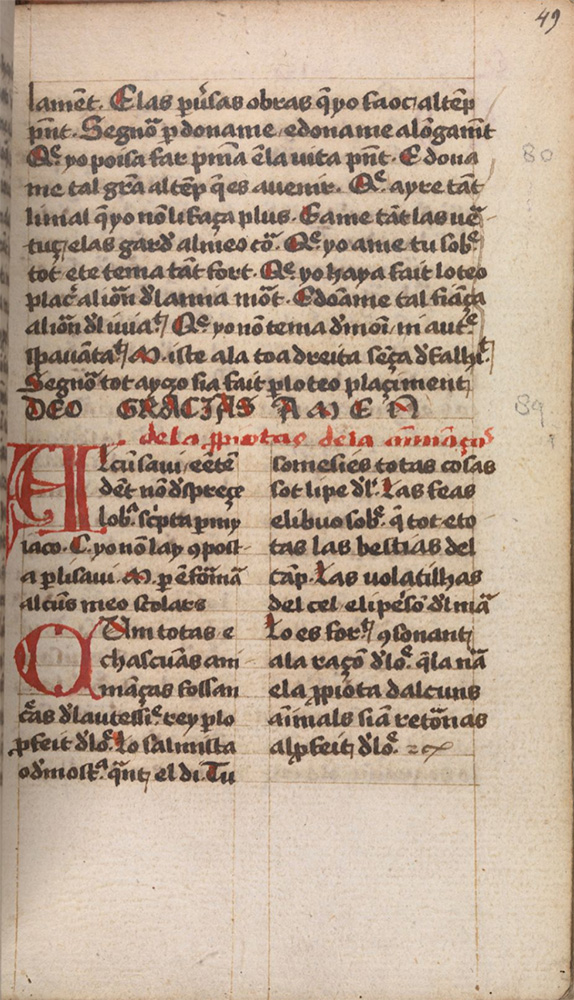 49
lamēt. Elas ꝑv̄sas obras q̄ yo faoc altēp
pn̄t. Segnō ꝑdoname e dona me alōgamēt
Qe yo poisa far pnīa ēla vita pn̄t. E dona
me tal gr̄a altēp q̄ es avenir. Qe ayre tāt
lo mal q̄ yo nō li faça plus. E ame tāt las v̄
tuç e las gard al meo cō. Qe yo ame tu sob
tot e te tema tāt fort. Qe yo haya fait lo teo
plac alion dla mia mōt. E dōa me tal fiāça
alion dl iuia Qe yo nō tema d moī ni aut
spavāta M iste ala toa dreita sēça d falh
Segnō tot ayczo sia fait ꝑ lo teo plaçiment
DEO GRACIAS AMEN
80
89
de la ꝓpietas de la animāças
Alcū savi e ētē
dēt nō dspreçe
lob sc̄pta ꝑ my
iaco. C. yo nō lay ꝯpost
a ꝑ li savi. M. ꝑ ēfōmā
alcūs meo scolars
Qum totas e
chascuas ani
māças fossan
c̄as d lautessi rey ꝑ lo
ꝓfeit d lo. Lo salmista
o dmost q̄nt el di. Tu
somesies totas cosas
sot li pe dl. Las feas
e li buo sob. q̄ tot e to
tas las bestias del
cāp. Las volatilhas
del cel e li peso dl mā
Lo es for ꝯsonant
a la raçō d lo q̄ la nā
e la ꝓpiota d alcuns
animals siā retōnas
al ꝓfeit d lo.